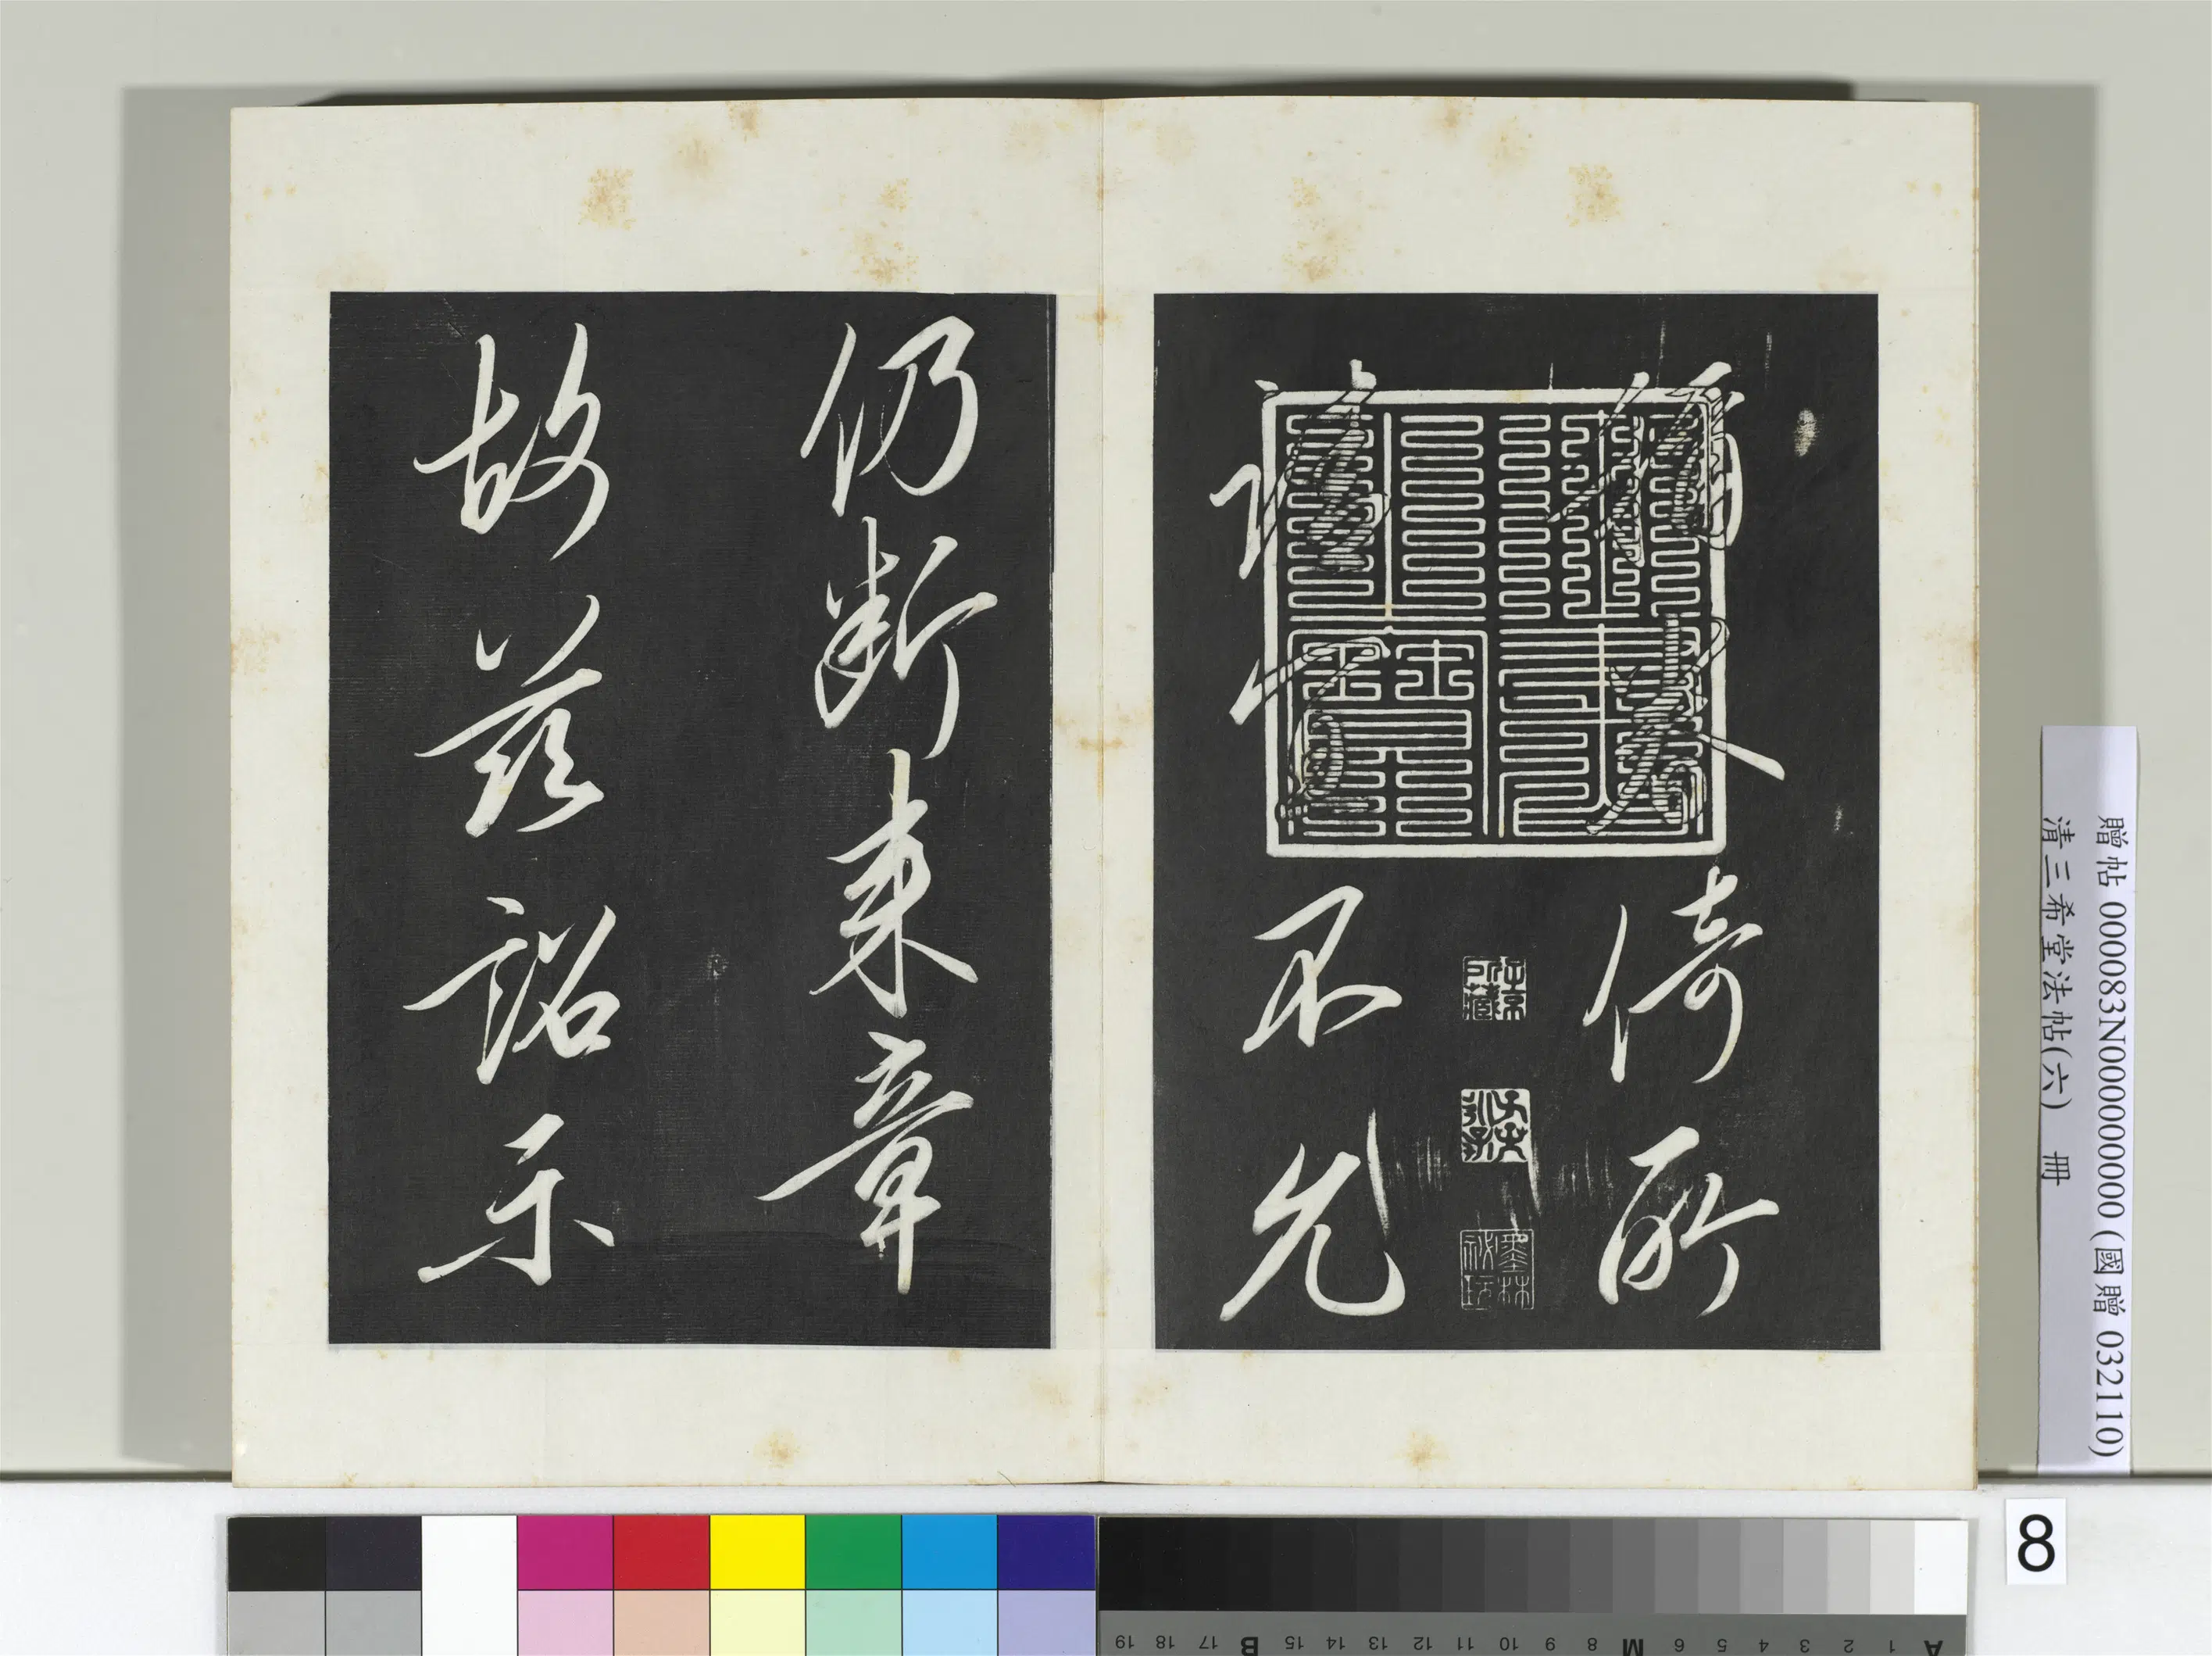 眷倚所
請宜不允
仍斷来章
故茲詔示
子京所藏
墨林祕玩
贈帖 000083N000000000 (國贈 032110)
清三希堂法帖(六) 冊
8
A 1 2 3 4 5 6 M 8 9 10 11 12 13 14 15 B 17 18 19